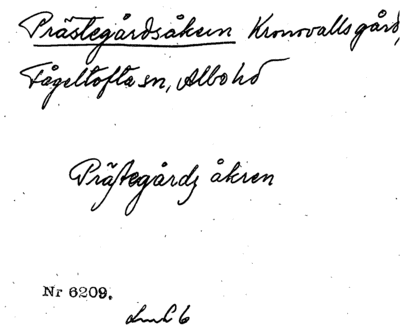 Prästegårdsåkern Kronovalls gård,
Fågeltofta sn, Albo hd
Prästegårds åkren
Nr 6209.